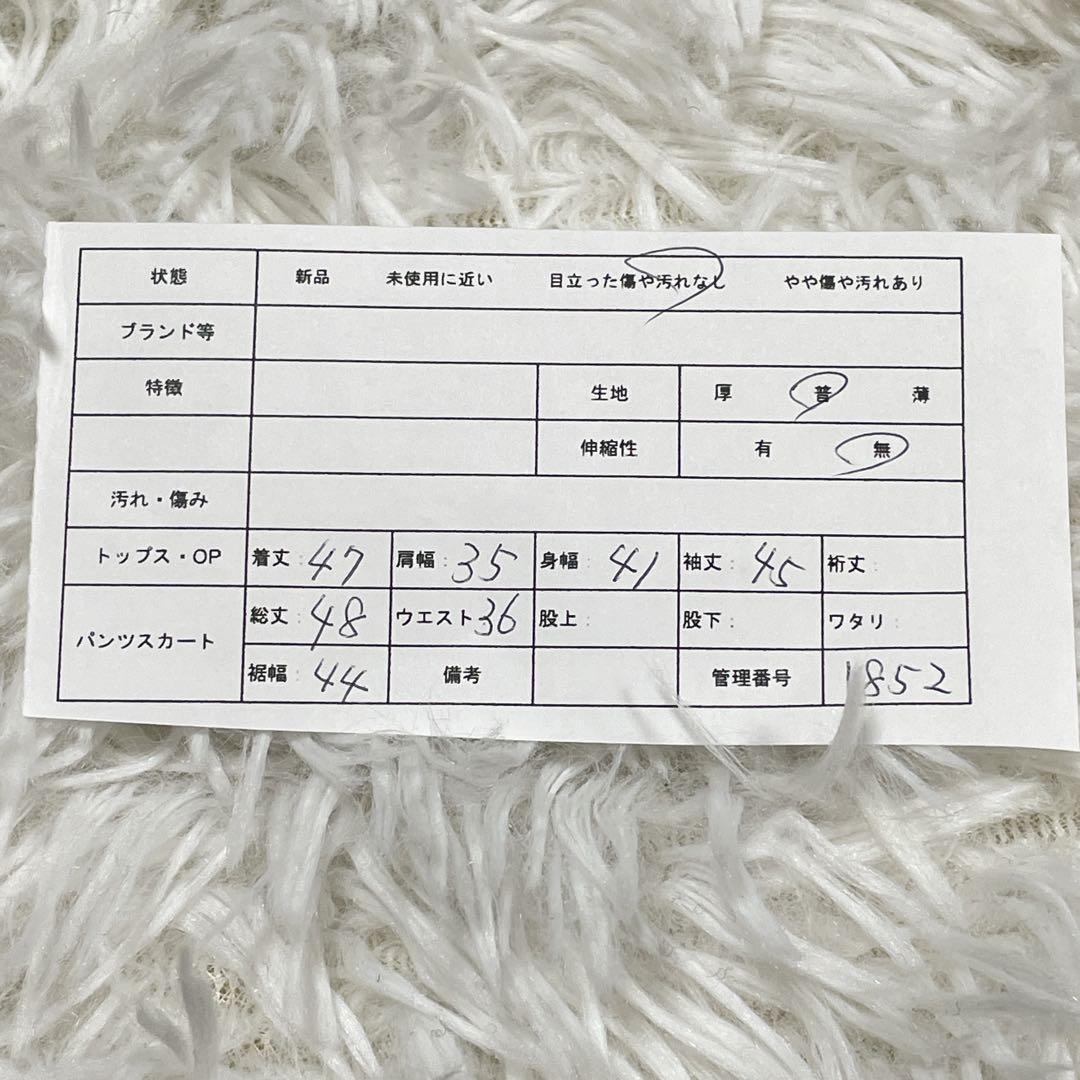 状態 新品 未使用に近い 目立った傷や汚れなし やや傷や汚れあり
ブランド等
特徴 生地 厚 普 薄
伸縮性 有 無
汚れ・傷み
トップス・OP 着丈: 47 肩幅: 35 身幅: 41 袖丈: 45 裄丈:
パンツスカート 総丈: 48 ウエスト 36 股上: 股下: ワタリ:
裾幅: 44 備考 管理番号 1852